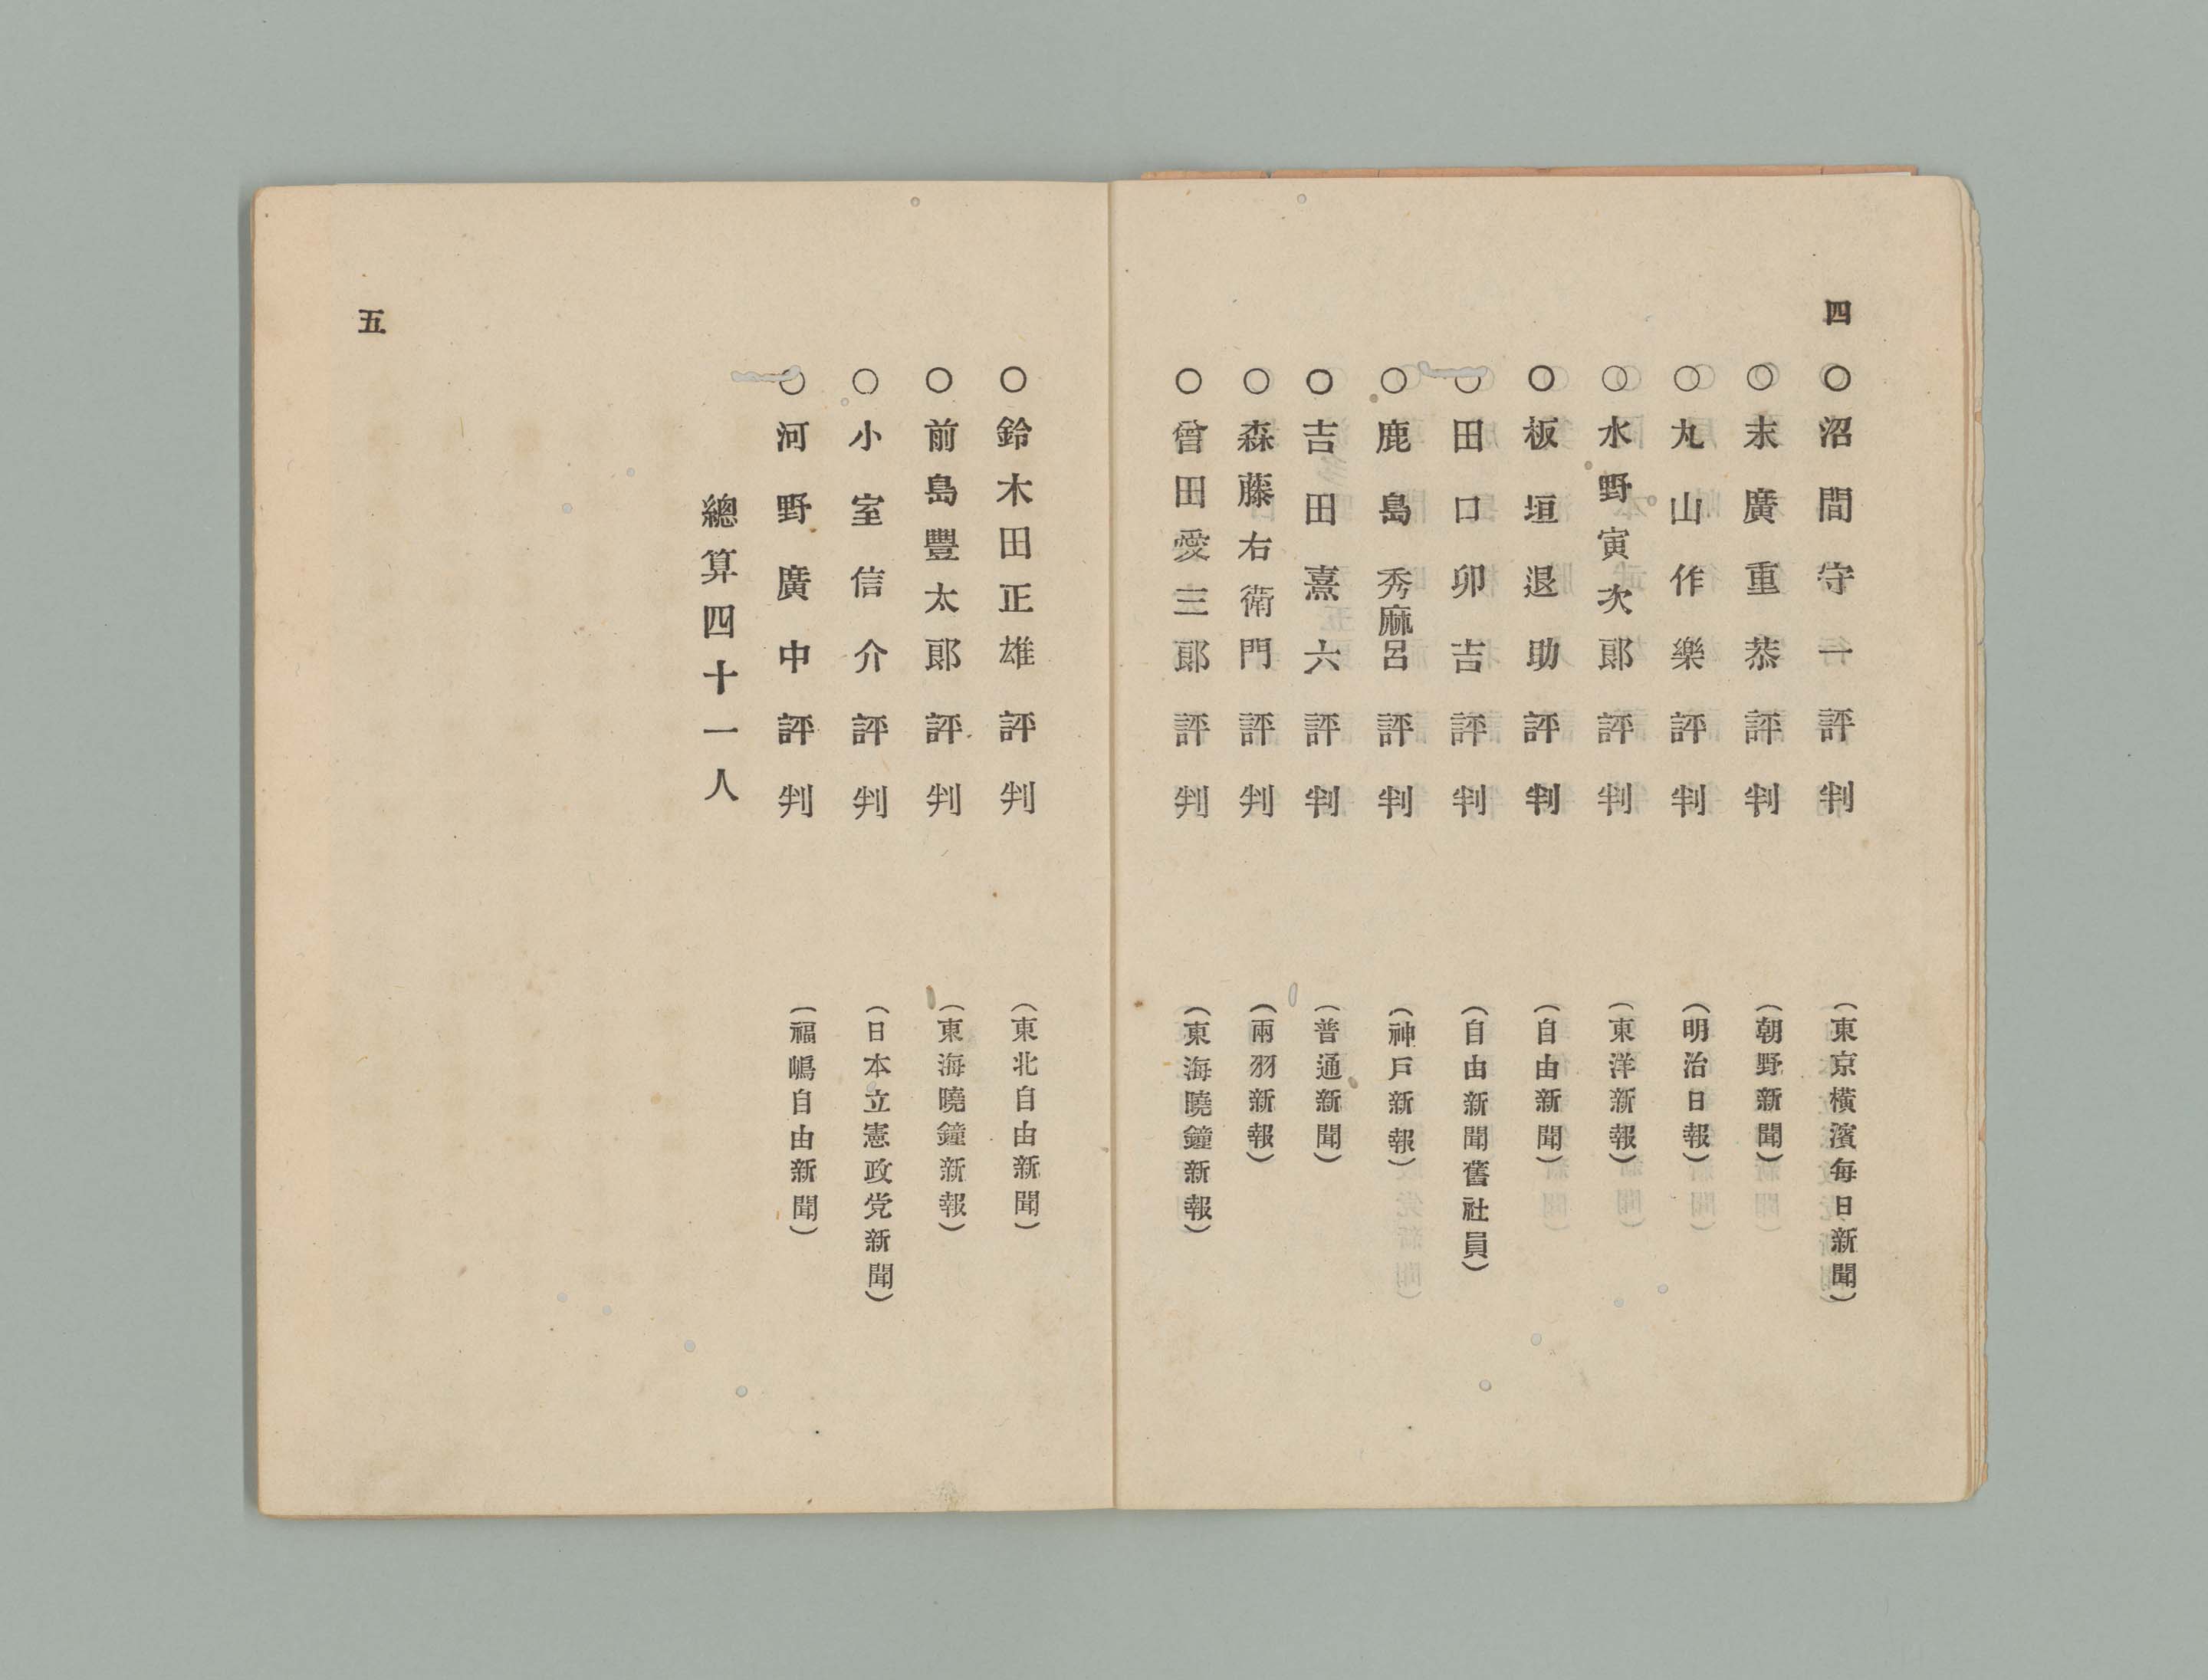 四
○沼間守一評判　（東京横濱毎日新聞）
○末廣重恭評判　（朝野新聞）
○丸山作樂評判　（明治日報）
○水野寅次郎評判　（東洋新報）
○板垣退助評判　（自由新聞）
○田口卯吉評判　（自由新聞舊社員）
○鹿島秀麻呂評判　（神戸新報）
○吉田熹六評判　（普通新聞）
○森藤右衛門評判　（兩羽新報）
○曾田愛三郎評判　（東海曉鐘新報）
○鈴木田正雄評判　（東北自由新聞）
○前島豐太郎評判　（東海曉鐘新報）
○小室信介評判　（日本立憲政党新聞）
○河野廣中評判　（福嶋自由新聞）
總算四十一人
五